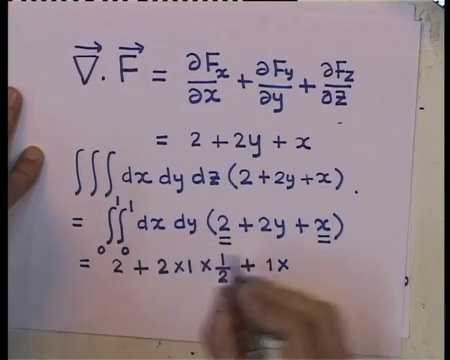 ∇⃗ . F⃗ = ∂Fx/∂x + ∂Fy/∂y + ∂Fz/∂z
= 2 + 2y + x
∫∫∫ dx dy dz (2 + 2y + x) .
= ∫₀¹ ∫₀¹ dx dy (2 + 2y + x)
= 2 + 2 × 1 × 1/2 + 1 ×